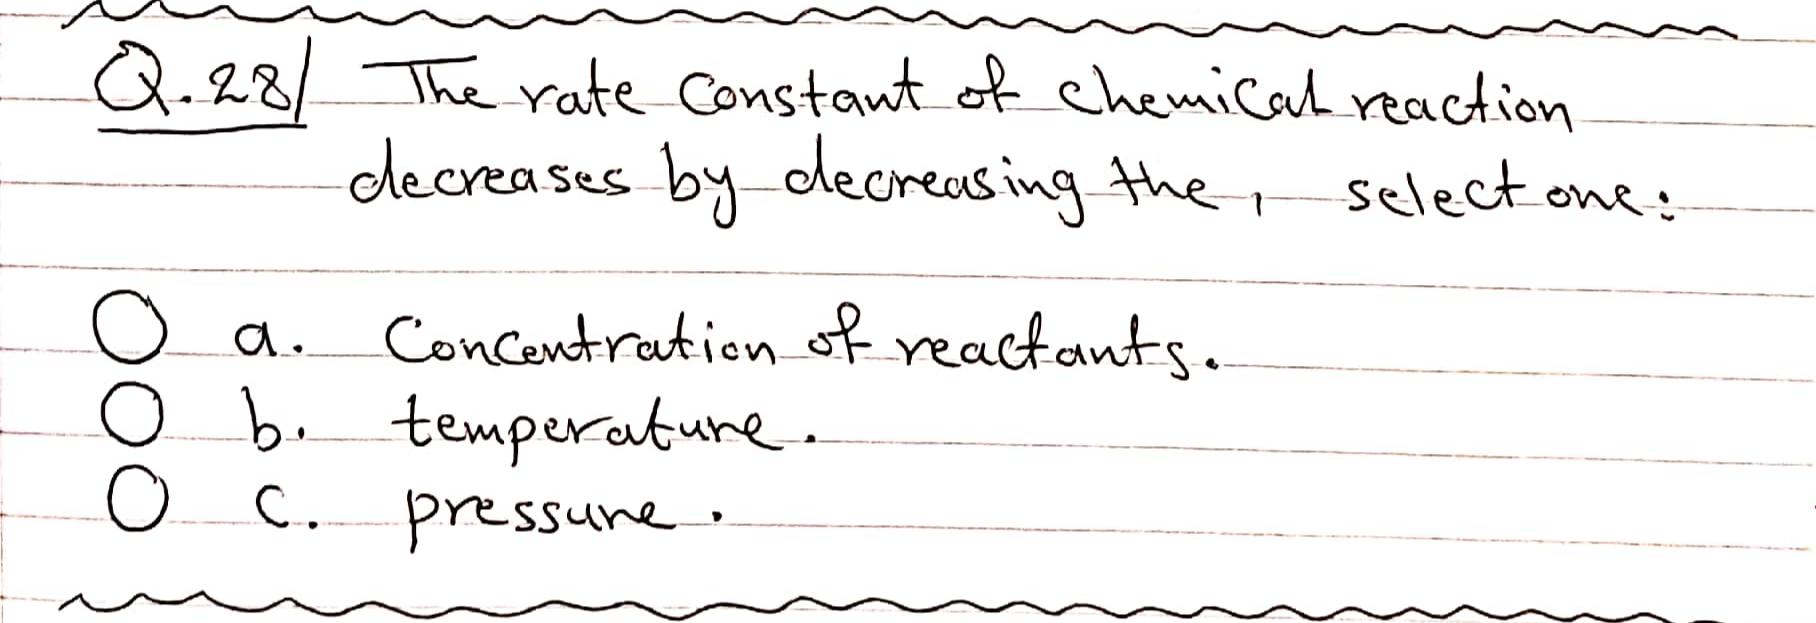 Q.28/ The rate constant of chemical reaction
decreases by decreasing the, select one:
a. Concentration of reactants.
b. temperature.
c. pressure.